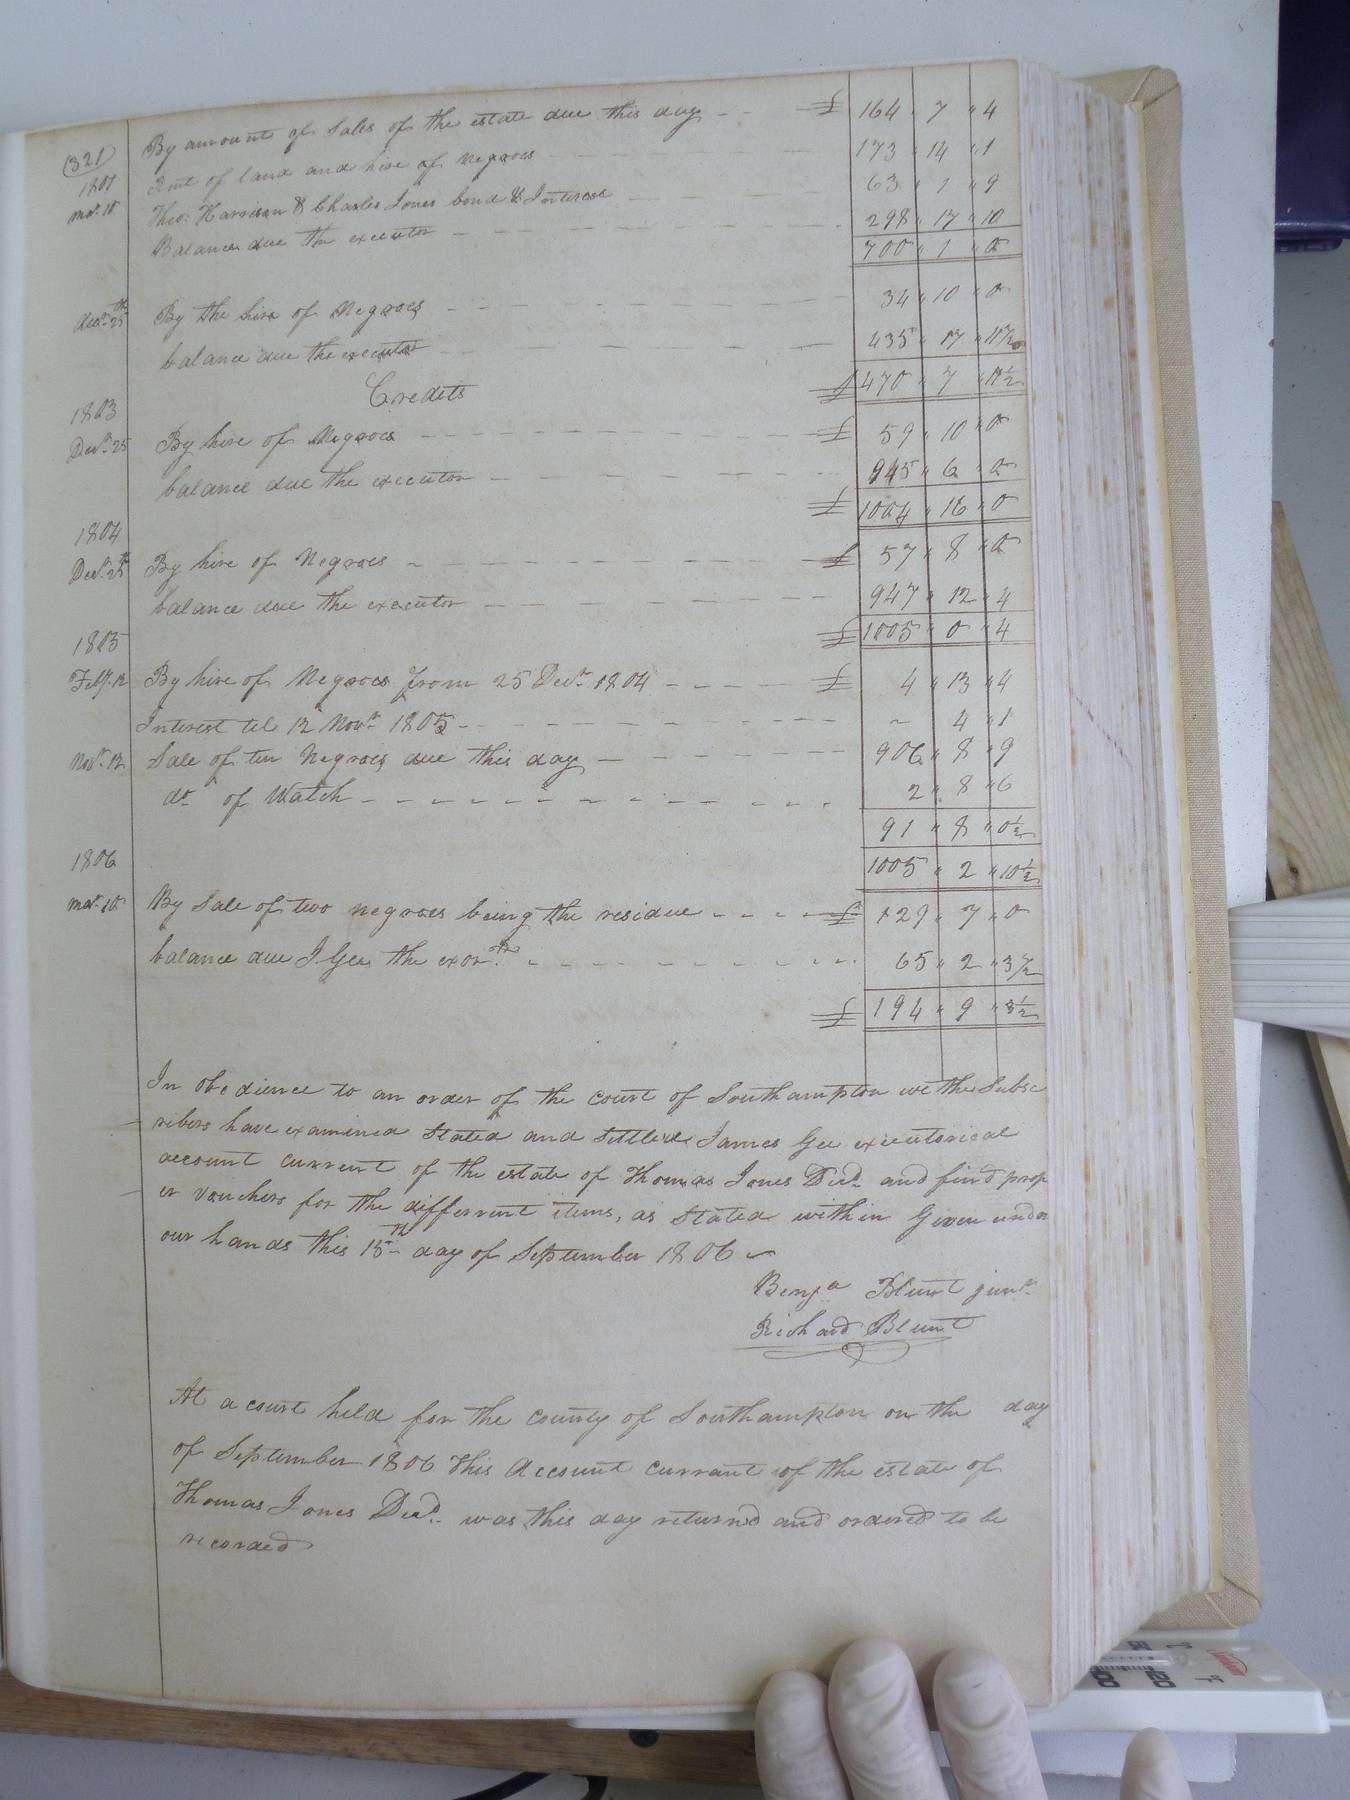 (321) By amount of Sales of the estate due this day - - £ 164 " 7 " 4
1801 Rent of land and hire of negroes 173 " 14 " 1
mar. 10 Theo: Harrison & Charles Jones bond & Interest 63 " 1 " 9
Balance due the executor 298 " 17 " 10
700 " 1 " 0
decr. 25th By the hire of Negroes 34 " 10 " 0
balance due the executor 435 " 17 " 11 1/2
£ 470 " 7 " 11 1/2
Credits
1803
Decr. 25 By hire of Negroes £ 59 " 10 " 0
balance due the executor 945 " 6 " 0
£ 1004 " 16 " 0
1804
Decr. 25th By hire of Negroes £ 57 " 8 " 0
balance due the executor 947 " 12 " 4
£ 1005 " 0 " 4
1805
Feby. 12 By hire of Negroes from 25 Decr 1804 £ 4 " 13 " 4
Interest til 12 Novr 1805 ~ 4 " 1
Novr. 12 Sale of ten Negroes due this day 906 " 8 " 9
do of Watch 2 " 8 " 6
91 " 8 " 0 1/2
1005 " 2 " 10 1/2
1806
mar. 10 By Sale of two negroes being the residue £ 129 " 7 " 0
balance due J. Gee the exor. 65 " 2 " 3 1/2
£ 194 " 9 " 3 1/2
In obedience to an order of the court of Southampton we the Subsc
ribers have examined Stated and Settled James Gee executorical
account current of the estate of Thomas Jones Decd. and find prop
er vouchers for the different items, as Stated within Given under
our hands this 15th day of September 1806
Benja Blunt junr.
Richard Blunt
At a court held for the county of Southampton on the day
of September 1806 This Account currant of the estate of
Thomas Jones Decd. was this day returned and ordered to be
recorded